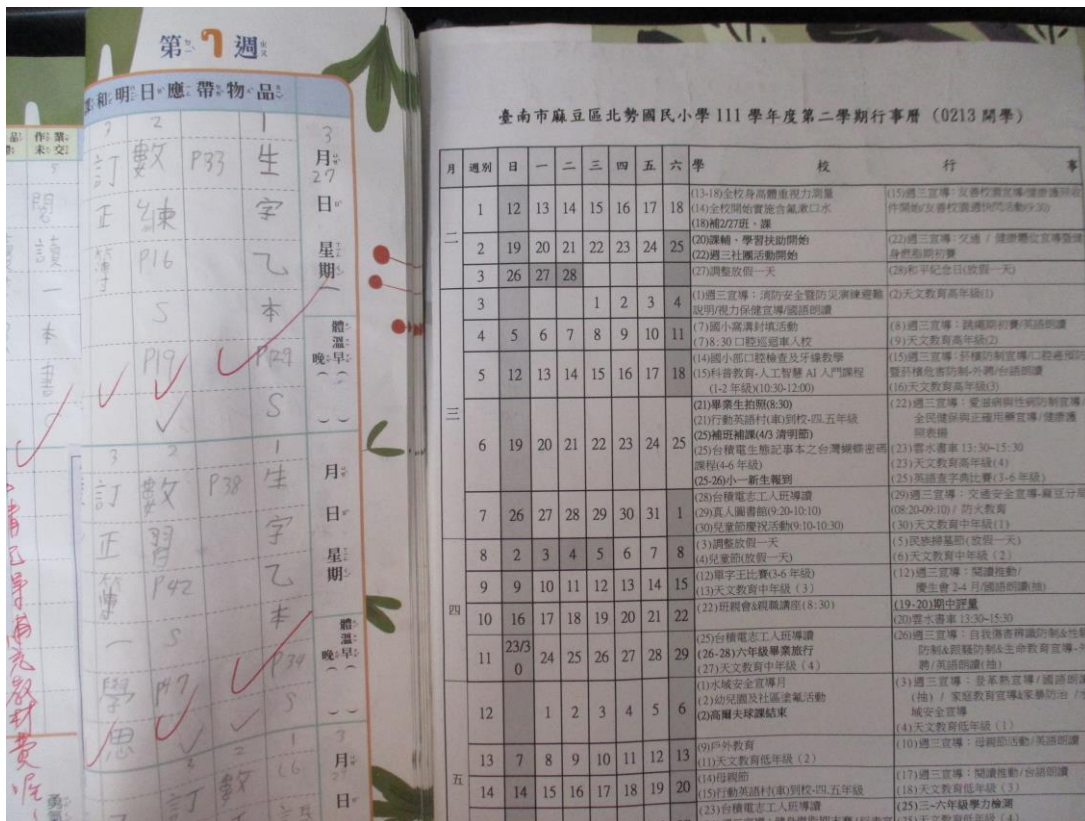 第7週
課和明日應帶物品
作業未交
閱讀一本書
3
月
27
日
星期
體溫
早
晚
1
生字乙本
P29
S
P33
2
數練
P16
S
P19
3
訂正簿
月
日
星期
體溫
早
晚
1
生字乙本
P34
S
P38
2
數習
P42
S
P47
3
訂正簿
一學思
補充教材費
3
月
29
日
臺南市麻豆區北勢國民小學 111 學年度第二學期行事曆（0213 開學）
月 週別 日 一 二 三 四 五 六 學 校 行 事
二
1 12 13 14 15 16 17 18
(13-18)全校身高體重視力測量
(14)全校開始實施含氟漱口水
(18)補2/27班、課
(15)週三宣導：友善校園宣導/健康護照收
件開始/友善校園週快閃活動(9:30)
2 19 20 21 22 23 24 25
(20)課輔、學習扶助開始
(22)週三社團活動開始
(22)週三宣導：交通 / 健康體位宣導暨健
身操班際初賽
3 26 27 28
(27)調整放假一天
(28)和平紀念日(放假一天)
三
3 1 2 3 4
(1)週三宣導：消防安全暨防災演練避難
說明/視力保健宣導/國語朗讀
(2)天文教育高年級(1)
4 5 6 7 8 9 10 11
(7)國小窩溝封填活動
(7)8:30 口腔巡迴車入校
(8)週三宣導：跳繩期初賽/英語朗讀
(9)天文教育高年級(2)
5 12 13 14 15 16 17 18
(14)國小部口腔檢查及牙線教學
(15)科普教育-人工智慧 AI 入門課程
(1-2 年級)(10:30-12:00)
(15)週三宣導：菸檳防制宣導/口腔癌預防
暨菸檳危害防制-外聘/台語朗讀
(16)天文教育高年級(3)
6 19 20 21 22 23 24 25
(21)畢業生拍照(8:30)
(21)行動英語村(車)到校-四.五年級
(25)補班補課(4/3 清明節)
(25)台積電生態記事本之台灣蝴蝶密碼
課程(4-6 年級)
(25-26)小一新生報到
(22)週三宣導：愛滋病與性病防制宣導/
全民健保與正確用藥宣導/健康護
照表揚
(23)雲水書車 13:30~15:30
(23)天文教育高年級(4)
(25)英語查字典比賽(3-6 年級)
7 26 27 28 29 30 31 1
(28)台積電志工入班導讀
(29)真人圖書館(9:20-10:10)
(30)兒童節慶祝活動(9:10-10:30)
(29)週三宣導：交通安全宣導-麻豆分局
(08:20-09:10) / 防火教育
(30)天文教育中年級(1)
四
8 2 3 4 5 6 7 8
(3)調整放假一天
(4)兒童節(放假一天)
(5)民族掃墓節(放假一天)
(6)天文教育中年級（2）
9 9 10 11 12 13 14 15
(12)單字王比賽(3-6 年級)
(13)天文教育中年級（3）
(12)週三宣導：閱讀推動/
慶生會 2-4 月/國語朗讀(抽)
10 16 17 18 19 20 21 22
(22)班親會&親職講座(8:30)
(19-20)期中評量
(20)雲水書車 13:30~15:30
11 23/30 24 25 26 27 28 29
(25)台積電志工入班導讀
(26-28)六年級畢業旅行
(27)天文教育中年級（4）
(26)週三宣導：自我傷害辨識防制&性騷
防制&霸凌防制&生命教育宣導-外
聘/英語朗讀(抽)
五
12 1 2 3 4 5 6
(1)水域安全宣導月
(2)幼兒園及社區塗氟活動
(2)高爾夫球課結束
(3)週三宣導：登革熱宣導/國語朗讀
(抽) / 家庭教育宣導&家暴防治 /水
域安全宣導
(4)天文教育低年級（1）
13 7 8 9 10 11 12 13
(9)戶外教育
(11)天文教育低年級（2）
(10)週三宣導：母親節活動/英語朗讀
14 14 15 16 17 18 19 20
(14)母親節
(15)行動英語村(車)到校-四.五年級
(17)週三宣導：閱讀推動/台語朗讀
(18)天文教育低年級（3）
(23)台積電志工入班導讀
(25)三~六年級學力檢測
(25)天文教育低年級（4）